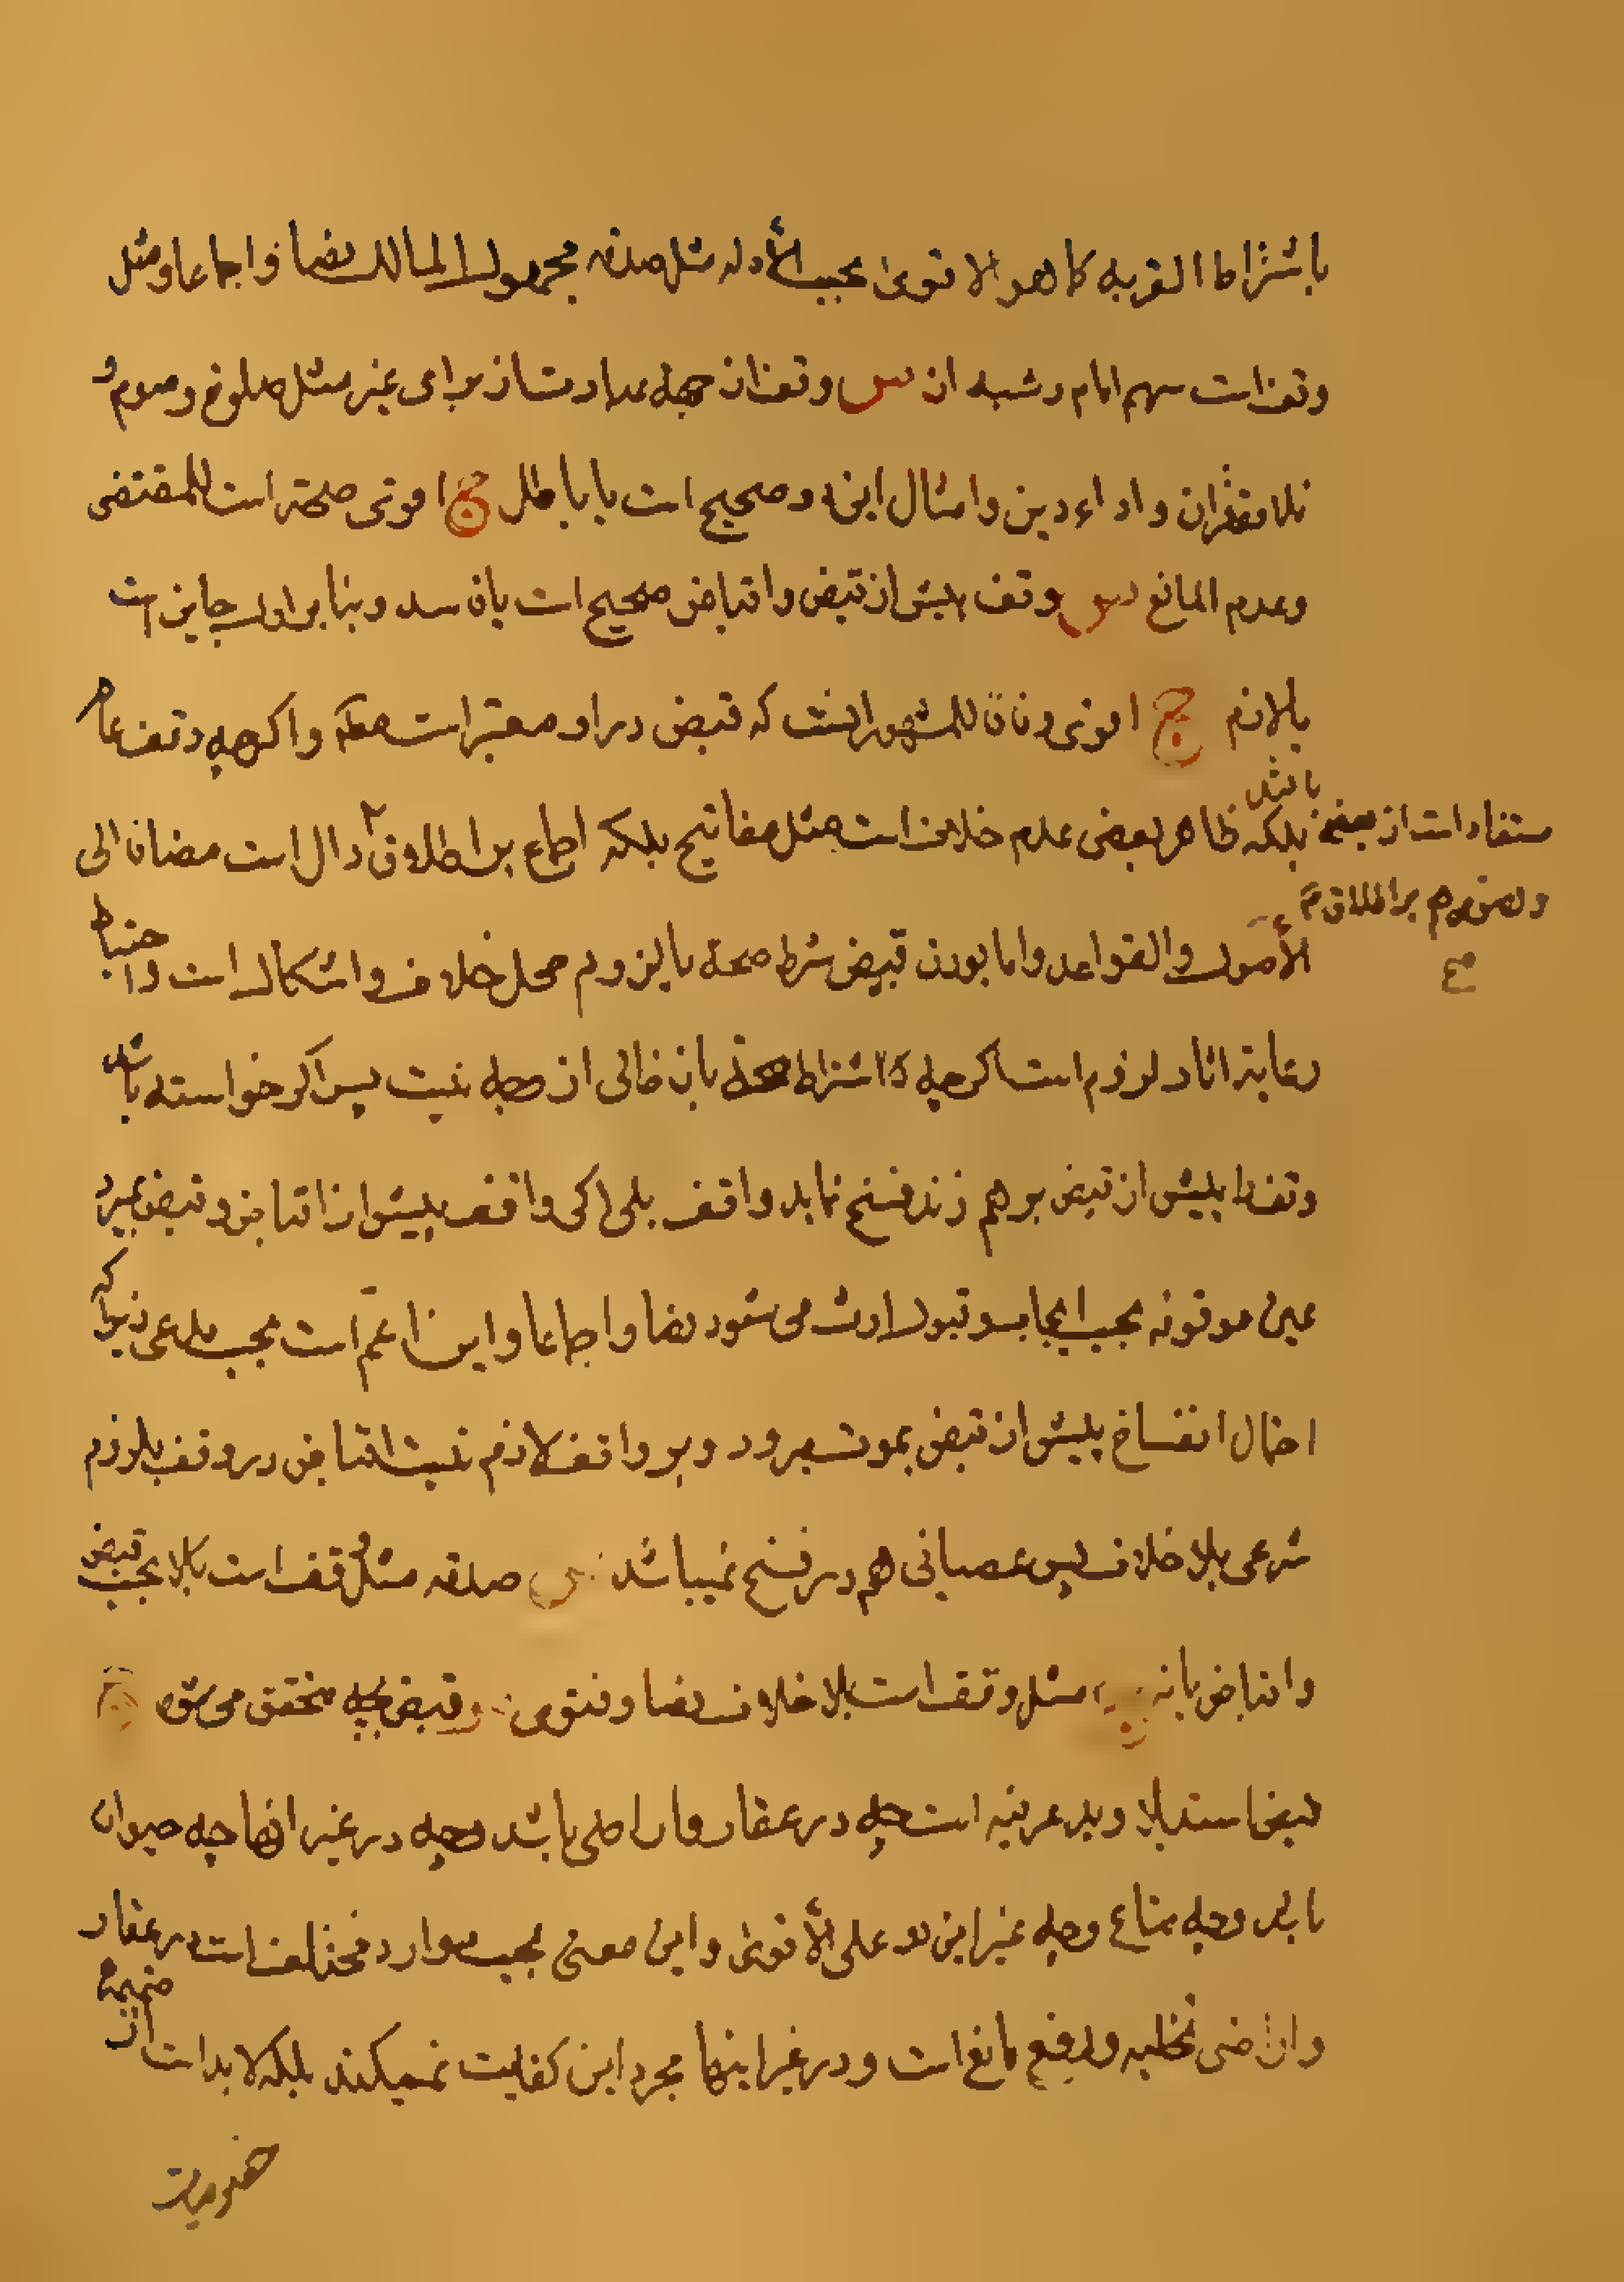 باشتراط القربه کما هو الاقوی بحسب الأدله مثل صدقه مجهول المالک نصا و اجماعا و مثل
وقف است سهم امام و شبه ان س وقف از جمله عبادتست از برای غیر مثل صلوة و صوم و
تلاوة قران و اداء دین و امثال اینها و صحیح است یا باطل ج اقوی صحته است للمقتضی
وعدم المانع س وقف پیش از قبض و اقباض صحیح است یا فاسد و بنا بر اول جایز است
یا لازم ج اقوی وفاقا للمشهور اینست که قبض در او معتبر است مطلقا و اکرچه وقف عام
باشد
بلکه ظاهر بعضی عدم خلافست مثل مفاتیح بلکه اجماع بر اطلاق دال است مضافا الی
مستفاد است از بعضی
و نصوص هم بر اطلاق
صح
الأصول والقواعد واما بودن قبض شرط صحة یا لزوم محل خلاف و اشکال است و احتیاط
رعایة اثار لزوم است اکرچه اشتراط صحة بان خالی از وجه نیست پس اکر خواسته باشد
وقف را پیش از قبض برهم زند فسخ نماید واقف بلی اکر واقف پیش از اقباض و قبض بمیرد
عین موقوفه بحسب ایجاب و قبول ارث می شود نصا و اجماعا و این اعم است بحسب مدعی زیرا که
احتمال انفساخ پیش از قبض بموت میرود و بر واقف لازم نیست اقباض در وقف بلزوم
شرعی بلا خلاف پس عصیانی هم در فسخ نمیباشد س صدقه مثل وقف است یا لا بحسب قبض
و اقباض یا نه ج مثل وقف است بلا خلاف نصا و فتوی س و قبض بچه متحقق می شود ج
قبض استیلا و ید عرفیه است چه در عقار و اراضی باشد و چه در غیر انها چه حیوان
باشد و چه متاع و چه غیر این دو علی الأقوی و این معنی بحسب موارد مختلف است در عقار
و اراضی تخلیه و رفع مانع است و در غیر اینها مجرد این کفایت نمیکند بلکه لابد است از ضمیمه
خصوصیات